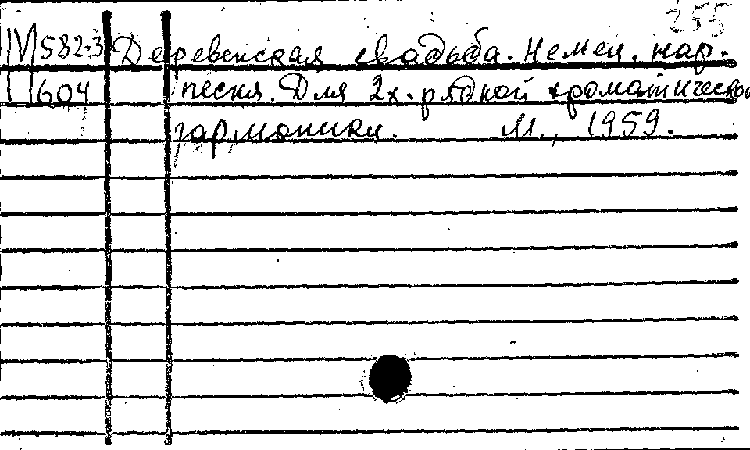 255
М 582-3 Деревенская свадьба. Немец. нар.
604 песня. Для 2х.рядной хроматической
гармоники. М., 1959.